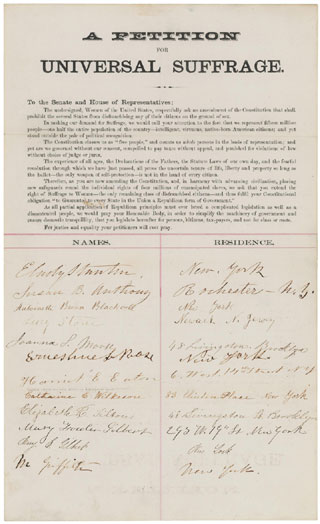 A PETITION
FOR
UNIVERSAL SUFFRAGE.
To the Senate and House of Representatives:
The undersigned, Women of the United States, respectfully ask an amendment of the Constitution that shall
prohibit the several States from disfranchising any of their citizens on the ground of sex.
In making our demand for Suffrage, we would call your attention to the fact that we represent fifteen million
people—one half the entire population of the country—intelligent, virtuous, native-born American citizens; and yet
stand outside the pale of political recognition.
The Constitution classes us as "free people," and counts us whole persons in the basis of representation; and
yet are we governed without our consent, compelled to pay taxes without appeal, and punished for violations of law
without choice of judge or juror.
The experience of all ages, the Declarations of the Fathers, the Statute Laws of our own day, and the fearful
revolution through which we have just passed, all prove the uncertain tenure of life, liberty and property so long as
the ballot—the only weapon of self-protection—is not in the hand of every citizen.
Therefore, as you are now amending the Constitution, and, in harmony with advancing civilization, placing
new safeguards round the individual rights of four millions of emancipated slaves, we ask that you extend the
right of Suffrage to Woman—the only remaining class of disfranchised citizens—and thus fulfil your Constitutional
obligation "to Guarantee to every State in the Union a Republican form of Government."
As all partial application of Republican principles must ever breed a complicated legislation as well as a
discontented people, we would pray your Honorable Body, in order to simplify the machinery of government and
ensure domestic tranquillity, that you legislate hereafter for persons, citizens, tax-payers, and not for class or caste.
For justice and equality your petitioners will ever pray.
NAMES. RESIDENCE.
E Cady Stanton New York
Susan B. Anthony Rochester - N.Y.
Antoinette Brown Blackwell New York
Lucy Stone Newark N. Jersey
Joanna S. Morse 48 Livingston. Brooklyn
Ernestine L Rose New York
Harriet E. Eaton 6. West 14th Street N.Y
Catharine C. Wilkeson 83 Clinton Place New York
Elizabeth R. Tilton 48 Livingston St. Brooklyn
Mary Fowler Gilbert 293 W. 19th St New York
New York
M. Griffith New York